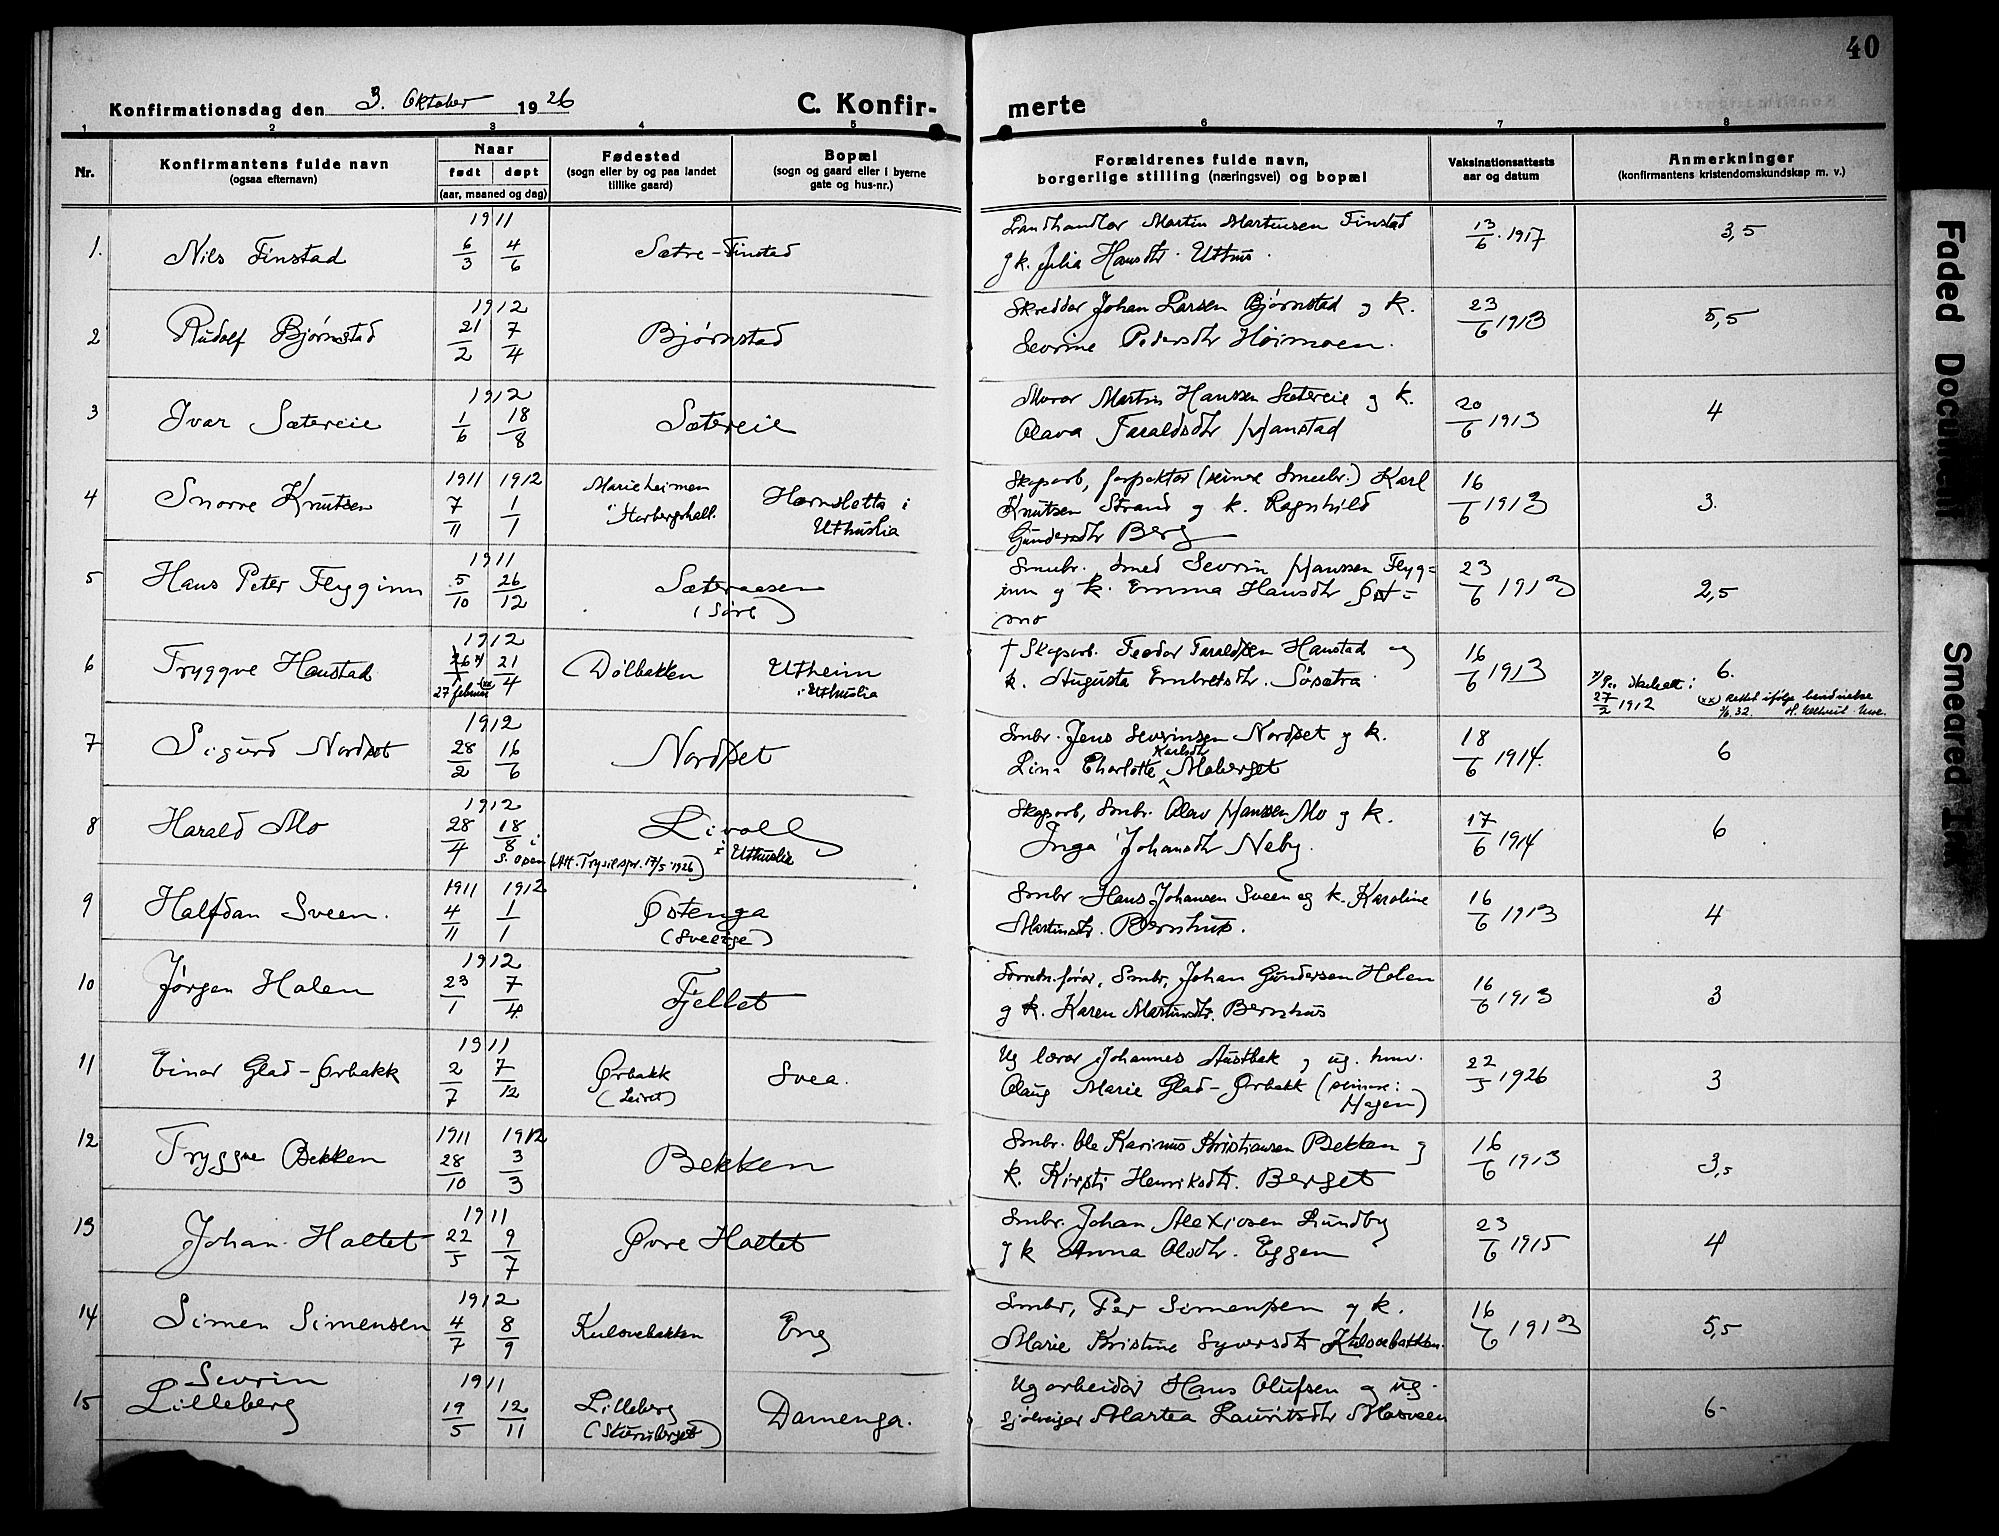 40
Konfirmationsdag den 3. Oktober 1926
C. Konfir-
merte
1 2 3 4 5 6 7 8
Nr.
Konfirmantens fulde navn
(ogsaa efternavn)
Naar
født døpt
(aar, maaned og dag)
Fødested
(sogn eller by og paa landet
tillike gaard)
Bopæl
(sogn og gaard eller i byerne
gate og hus-nr.)
Forældrenes fulde navn,
borgerlige stilling (næringsvei) og bopæl
Vaksinationsattests
aar og datum
Anmerkninger
(konfirmantens kristendomskundskap m. v.)
1911
1. Nils Finstad 6/3 4/6 Sætre-Finstad
Landhandler Martin Martinsen Finstad
g k. Julia Hansdtr. Uthus.
13/6 1917
3,5
1912
2 Rudolf Bjørnstad 21/2 7/4 Bjørnstad
Skredder Johan Larsen Bjørnstad g k.
Sevrine Pedersdtr Høimoen.
23/6 1913
5,5
1912
3 Ivar Sætereie 1/6 18/8 Sætereie
Murer Martin Hanssen Sætereie g k.
Olava Taraldsdtr Hanstad
20/6 1913
4
1911 1912
4 Snorre Knutsen 7/11 1/1
Marieheimen
i Storbergshall.
Hornsletta i
Uthuslia
Skogsarb, forpakter (seinere Smubr.) Karl
Knutsen Strand og k. Ragnhild
Gundersdtr Berg
16/6 1913
3.
1911
5 Hans Peter Flyginn 5/10 26/12
Sæteraasen
(Søre)
Smubr. smed Sevrin Hanssen Flyg=
inn g k. Emma Hansdtr Øst=
mo
23/6 1913
2,5
1912
6 Tryggve Hanstad 21/4
27 februar (xx
Dølbakken
Utheim
i Uthuslia
† Skogsarb. Feodor Taraldsen Hanstad og
k. Augusta Embretsdtr. Søsætra
16/6 1913
6.
27/2 1912
(xx) Rettet ifølge
7/6.32.
1912
7 Sigurd Nordset 28/2 16/6 Nordset
Smbr. Jens Sevrinsen Nordset g k.
Karlsdtr
Lina Charlotte Moberget
18/6 1914.
6
1912
8 Harald Mo 28/4 18/8 i Livoll
S. Osen (Att. Trysil spr. 17/5 1926) i Uthuslia
Skogsarb, Smbr. Olav Hanssen Mo g k.
Inga Johansdtr Neby.
17/6 1914
6
1911 1912
9 Halfdan Sveen. 4/11 1/1
Østenga
(Sverige)
Smbr Hans Johansen Sveen og k. Karoline
Martinsdtr. Bernhus.
16/6 1913
4
1912
10 Jørgen Holen 23/1 7/4 Fjellet
Smbr, Johan Gundersen Holen
g k. Karen Martinsdtr. Bernhus
16/6 1913
3
1911
11 Einar Glad-Ørbakk 2/7 7/12
Ørbakk
(Leiret)
Svea.
Ug lærer Johannes Austbak g ug. husv.
Olaug Marie Glad-Ørbakk (seinere:
Hagen)
22/5 1926
3
1911 1912
12 Tryggve Bekken 28/10 3/3 Bekken
Smbr. Ole Karinus Kristiansen Bekken g
k. Kirsti Henriksdtr. Berget
16/6 1913
3,5
1911
13 Johan Holtet 22/5 9/7 Øvre Holtet
Smbr. Johan Alexiosen Lundby
g k Anna Olsdtr. Eggen
23/6 1915
4
1912
14 Simen Simensen 4/7 8/9 Kulsvebakken Eng
Smbr, Per Simensen g k.
Marie Kristine Syversdtr Kulsvebakken.
16/6 1913
5,5
Sevrin
1911
15 Lilleberg 19/5 12/11
Lilleberg
(Stierneberget)
Damenga.
Ug arbeider Hans Olufsen g ug.
Martea Lauritsdtr Mosveen
6-
Faded Document
Smeared Ink